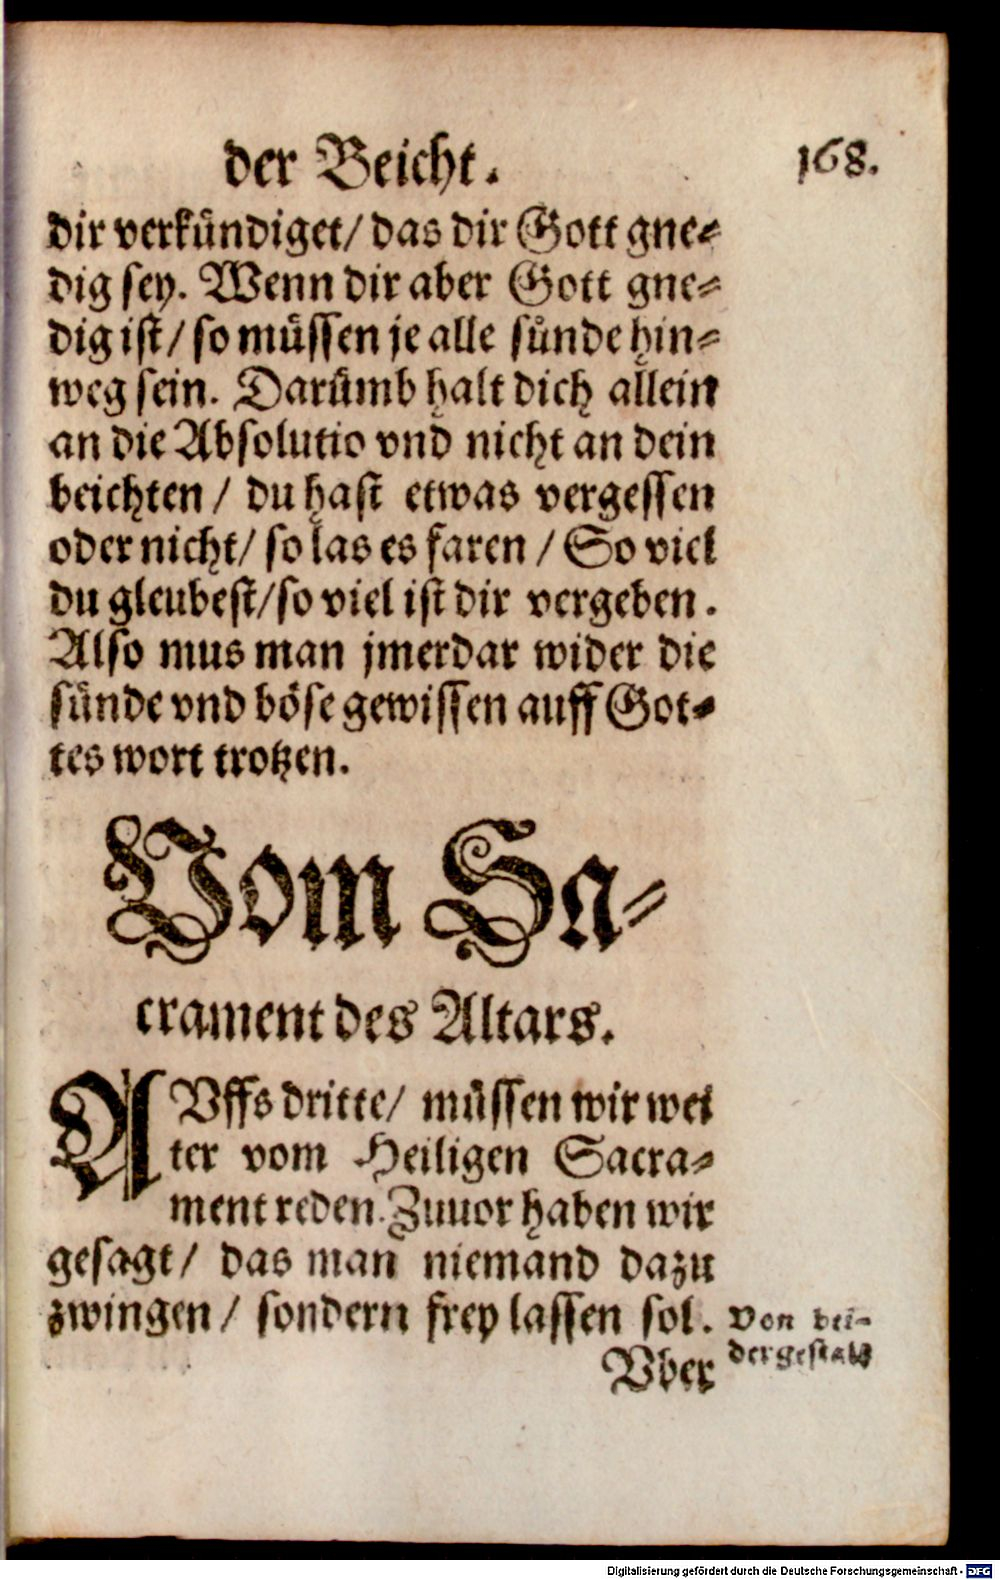 der Beicht.
168.
dir verkündiget/ das dir Gott gne⸗
dig sey. Wenn dir aber Gott gne⸗
dig ist/ so müssen je alle sünde hin⸗
weg sein. Darümb halt dich allein
an die Absolutio vnd nicht an dein
beichten/ du hast etwas vergessen
oder nicht/ so las es faren/ So viel
du gleubest/ so viel ist dir vergeben.
Also mus man jmerdar wider die
sünde vnd böse gewissen auff Got⸗
tes wort trotzen.
Vom Sa⸗
crament des Altars.
AVffs dritte/ müssen wir wei
ter vom Heiligen Sacra⸗
ment reden. Zuuor haben wir
gesagt/ das man niemand dazu
zwingen/ sondern frey lassen sol.
Von bei⸗
der gestalt
Vber
Digitalisierung gefördert durch die Deutsche Forschungsgemeinschaft - DFG